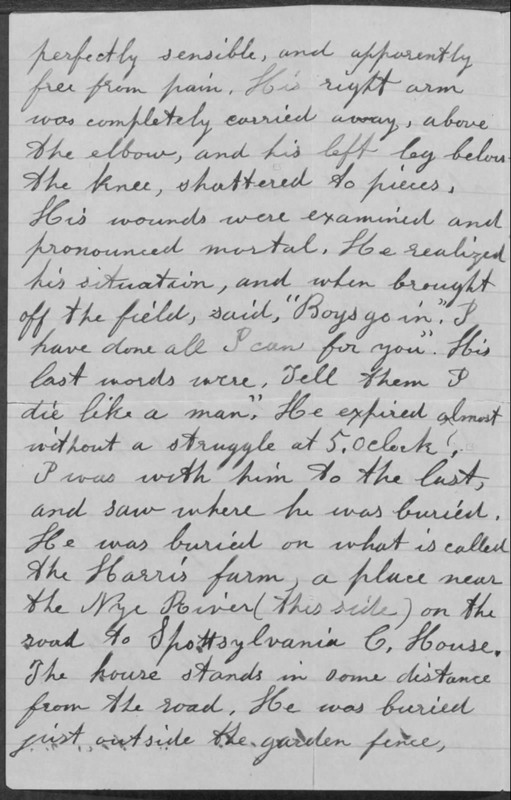 perfectly sensible, and apparently
free from pain. His right arm
was completely carried away, above
the elbow, and his left leg below
the knee, shattered to pieces.
His wounds were examined and
pronounced mortal. He realized
his situatain, and when brought
off the field, said, "Boys go in". I
have done all I can for you". His
last words were, Tell them I
die like a man", He expired almost
without a struggle at 5. oclock!,
I was with him to the last,
and saw where he was buried.
He was buried on what is called
the Harris farm, a place near
the Nye River (this side) on the
road to Spottsylvania C. House.
The house stands in some distance
from the road. He was buried
just outside the garden fence,